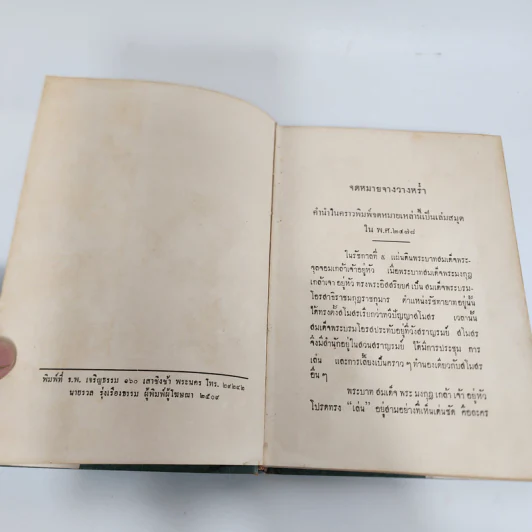 พิมพ์ที่ ร.พ. เจริญธรรม ๑๖๐ เสาชิงช้า พระนคร โทร. ๒๙๒๔๒
นายรวล รุ่งเรืองธรรม ผู้พิมพ์ผู้โฆษณา ๒๕๐๙
จดหมายจางวางหร่ำ
คำนำในคราวพิมพ์จดหมายเหล่านี้เป็นเล่มสมุด
ใน พ.ศ.๒๔๗๘
ในรัชกาลที่ ๕ แผ่นดินพระบาทสมเด็จพระ-
จุลจอมเกล้าเจ้าอยู่หัว เมื่อพระบาทสมเด็จพระมงกุฎ
เกล้าเจ้าอยู่หัว ทรงพระอิสสริยยศเป็น สมเด็จพระบรม-
โอรสาธิราชมกุฎราชกุมาร ตำแหน่งรัชทายาทอยู่นั้น
ได้ทรงตั้งสโมสรเรียกว่าทวีปัญญาสโมสร เวลานั้น
สมเด็จพระบรมโอรสประทับอยู่ที่วังสราญรมย์ สโมสร
จึงมีสำนักอยู่ในสวนสราญรมย์ ได้มีการประชุม การ
เล่น และการเลี้ยงเป็นคราว ๆ ทำนองเดียวกับสโมสร
อื่น ๆ
พระบาท สมเด็จ พระ มงกุฎ เกล้า เจ้า อยู่หัว
โปรดทรง "เล่น" อยู่สามอย่างที่เห็นเด่นชัด คือละคร